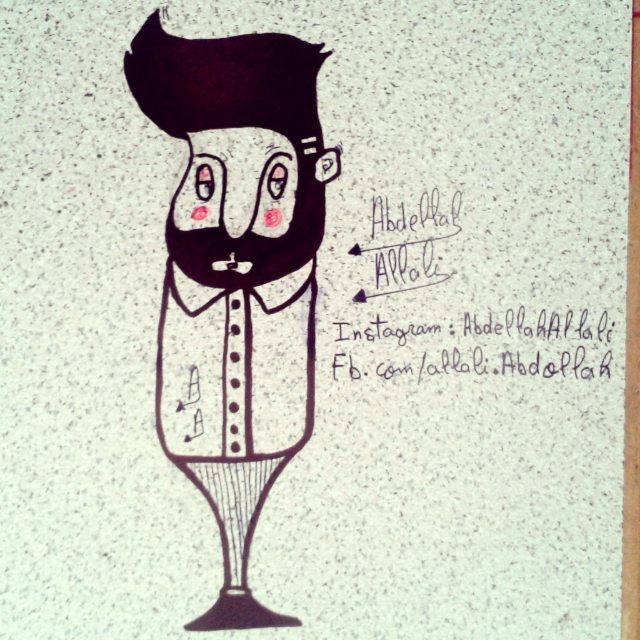 Abdellah
Allali
Instagram: AbdellahAllali
Fb.com/allali.Abdollah
A
A